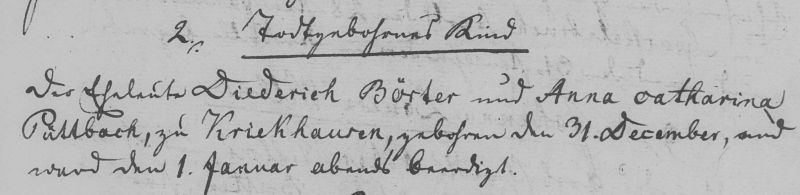 2. Todtgebohrnes Kind
der Eheleute Diederich Börster und Anna Catharina
Püttbach, zu Kriekhausen, gebohren den 31. December, und
ward den 1. Januar abends beerdigt.